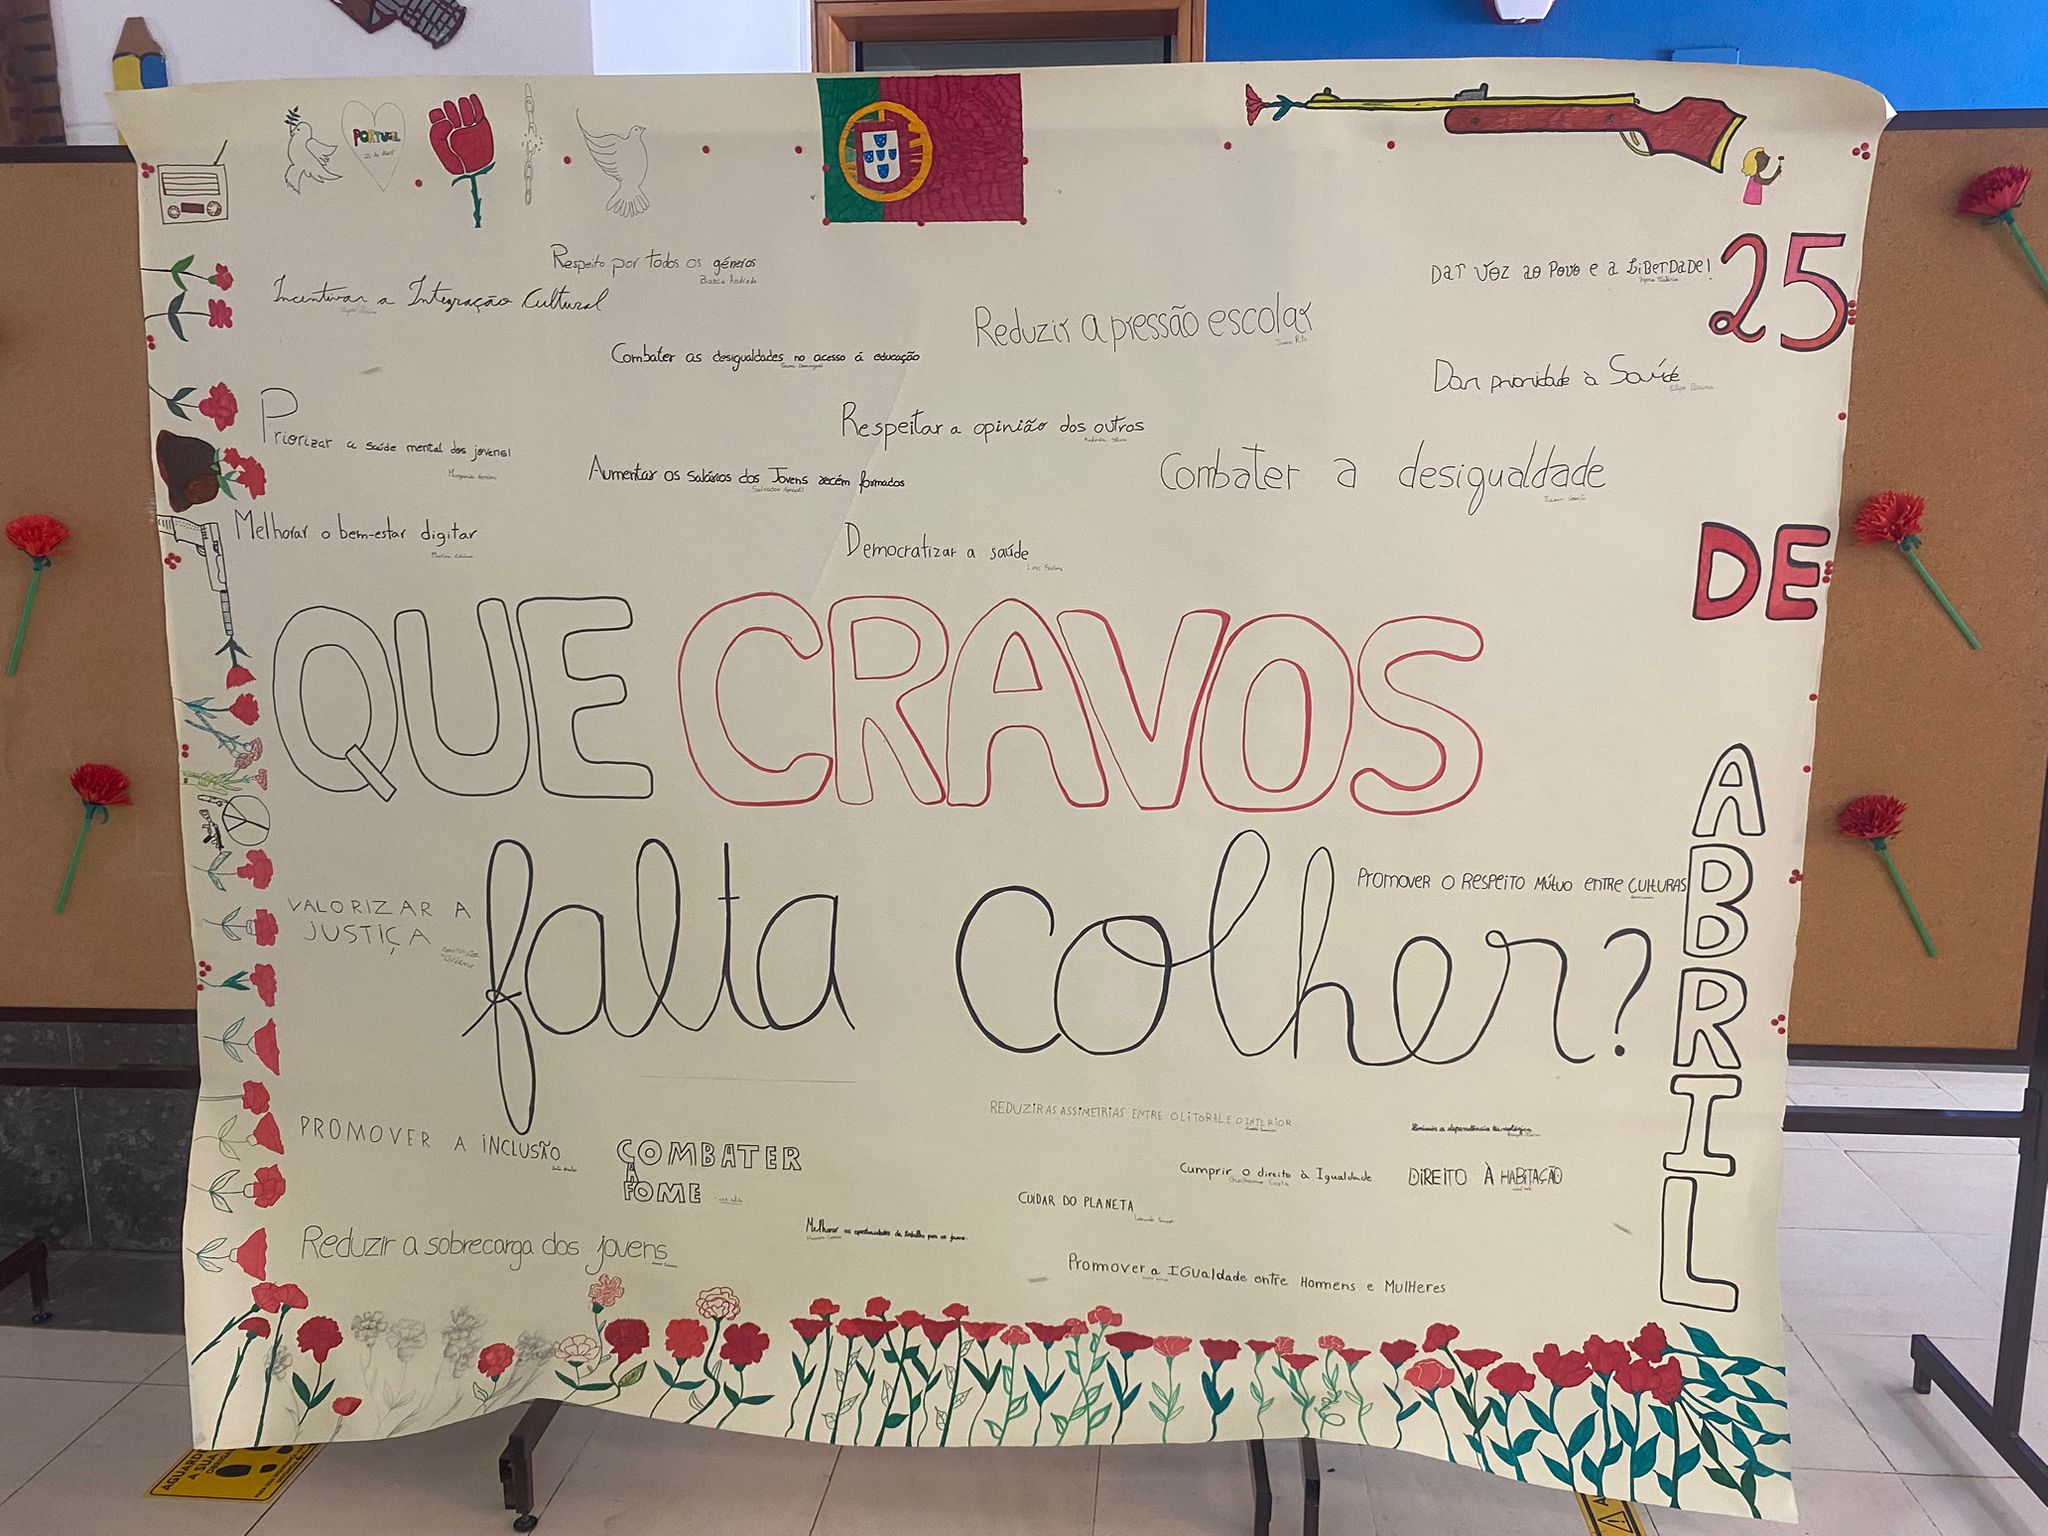 PORTUGAL
25 de Abril
Respeito por todos os géneros
Bianca Andrade
Incentivar a Integração Cultural
Dar voz ao Povo e a LiBerDaDe!
25
Reduzir a pressão escolar
Combater as desigualdades no acesso á educação
Dar prioridade à Saúde
Priorizar a saúde mental dos jovens!
Respeitar a opinião dos outros
Aumentar os Salários dos Jovens recém formados
Combater a desigualdade
Melhorar o bem-estar digitar
Democratizar a saúde
DE
QUE CRAVOS
falta colher?
ABRIL
Promover o respeito mútuo entre culturas
VALORIZAR A
JUSTIÇA
REDUZIR AS ASSIMETRIAS ENTRE O LITORAL E O INTERIOR
PROMOVER A INCLUSÃO
COMBATER
A
FOME
a dependência tecnológica
Cumprir o direito à Igualdade
Guilherme Costa
DIREITO À HABITAÇÃO
CUIDAR DO PLANETA
Melhorar as oportunidades de trabalho para os jovens.
Reduzir a sobrecarga dos jovens
Promover a IGualdade entre Homens e Mulheres
AGUARDE
A SUA